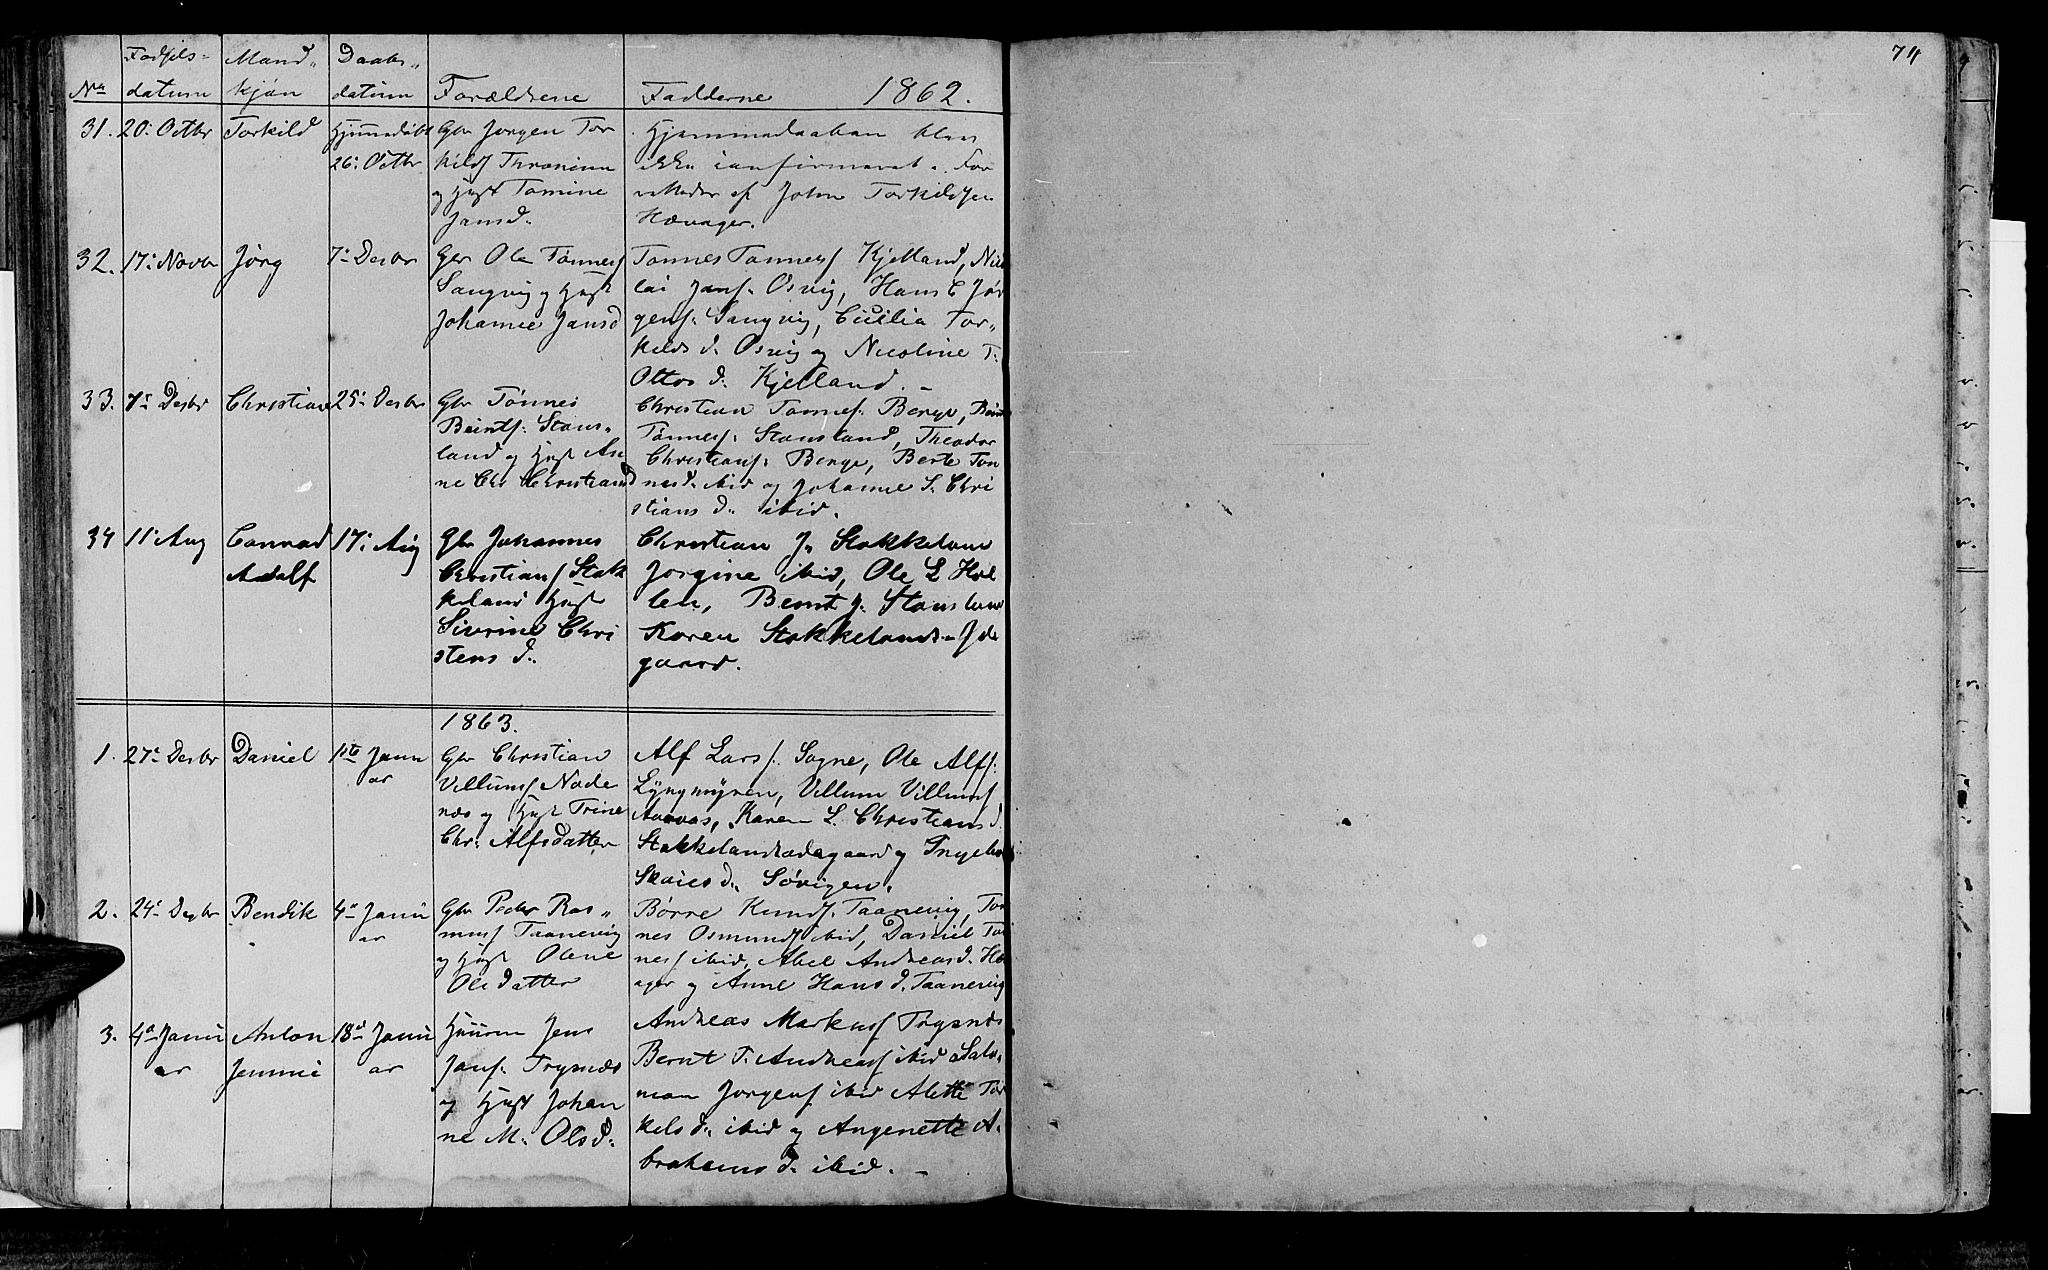 No Fødsels- datum Mand- kjøn Daabs- datum Forældrene Fadderne 1862.
31. 20: Octbr Torkild Hjemmedøbt Gbr Jørgen Tor
26: Octbr kilds
og Hust Tomine
Jansd:
Hjemmedaaben blev
ikke confirmeret. For
rettedes af John Torkildsen
Hævager.
32. 17: Novbr Jørg 7: Desbr Gbr Ole Tønnes
Sangvig og Hust
Johanne Jansd
Tønnes Tønnes Kjelland, Nico
lai Jans: Osvig, Hans C Jør
gens: Sangvig, Cecilia Tor-
kilds d. Osvig og Nicoline T.
Ottos d. Kjelland. -
33. 7: Desbr Christian 25: Desbr Gbr Tønnes
Beints: Stans-
land og Hust An
ne Chr Christians d
Christian Tønnes: Berge, Beint
Tønnes: Stansland, Theodor
Christians: Berge, Berte Tøn
nesd. ibid og Johanne S. Chri
stians d: ibid.
34 11: Aug Conrad Adolf 17: Aug Gbr Johannes
Christians Stok
keland Hust
Siverine Chri
stens d:
Christian J. Stokkeland
Jorgine ibid, Ole L Hol
len, Bernt J. Stansland
Karen Stokkelands- Øde
gaard.
1863.
1. 27: Desbr Daniel 1ste Janu
ar Gbr Christian
Villums Node
næs og Hust Trine
Chr: Alfsdatter
Alf Lars: Søgne, Ole Alfs:
Lyngmyren, Villum Villums
Aaros, Karen L. Christians d.
Stokkelandsødegaard og Ingeborg
Skaiesd. Søvigen.
2. 24: Desbr Bendik 4: Janu
ar Gbr Peder Ras-
muss Taanevig
og Hust Olene
Ole Datter
Børre Knuds. Taanevig, Tøn
nes Osmunds ibid, Daniel Tøn
ness ibid, Abel Andreas d. Hæ
ager og Anne Hans d. Taanevig
3. 4: Janu
ar Anton
Jemmi 18: Janu
ar Huusm Jens
Jans: Trysnæs
og Hust Johan
ne M: Olsd:
Andreas Markuss Trysnæs
Bernt T. Andreass ibid Salo-
mon Jørgens ibid Alette Tor
kelsd: ibid og Angenette A-
brahams d. ibid. -
74